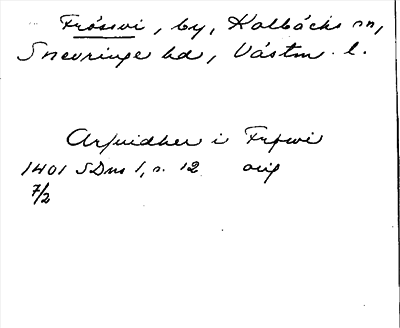 Frössvi, by, Kolbäcks sn,
Snevringe hd, Västm. l.
Arfuidher i Frøswi
1401 SDns 1, s. 12 orig
7/2